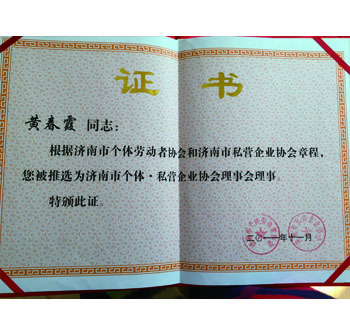 证书
黄春霞 同志：
根据济南市个体劳动者协会和济南市私营企业协会章程，
您被推选为济南市个体·私营企业协会理事会理事。
特颁此证。
二〇一一年十一月